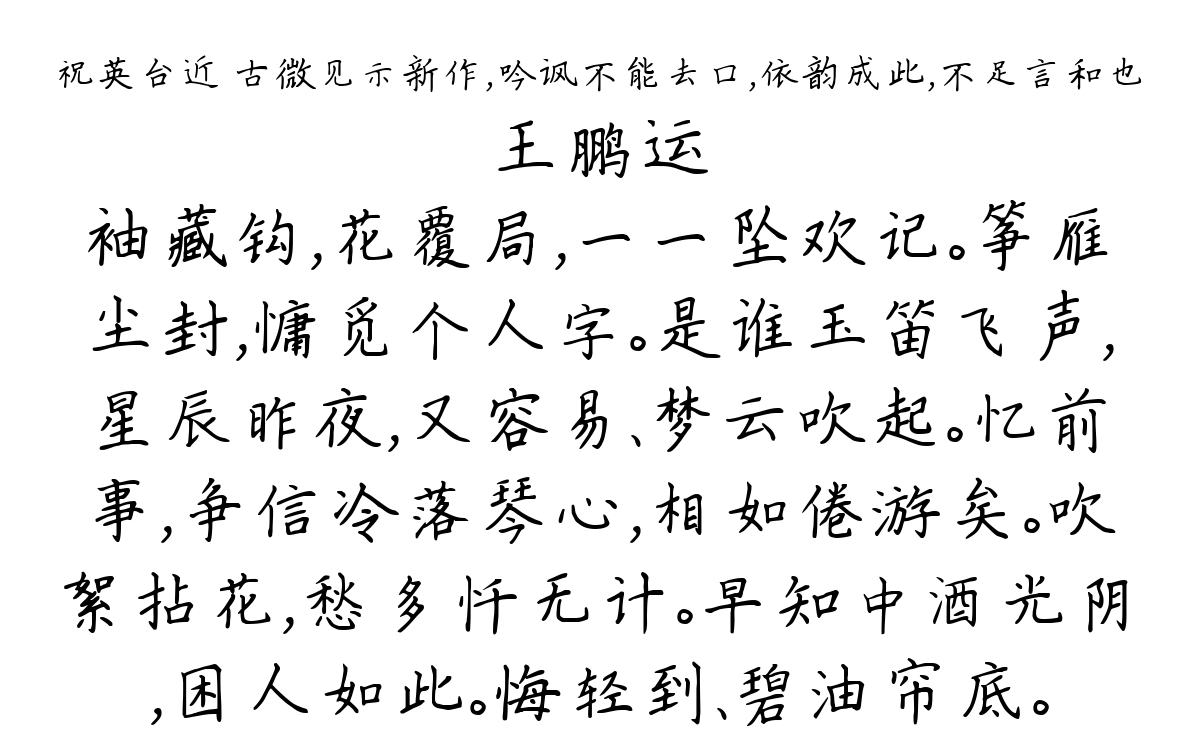 祝英台近 古微见示新作,吟讽不能去口,依韵成此,不足言和也
王鹏运
袖藏钩,花覆局,一一坠欢记。筝雁
尘封,慵觅个人字。是谁玉笛飞声,
星辰昨夜,又容易、梦云吹起。忆前
事,争信冷落琴心,相如倦游矣。吹
絮拈花,愁多忏无计。早知中酒光阴
,困人如此。悔轻到、碧油帘底。